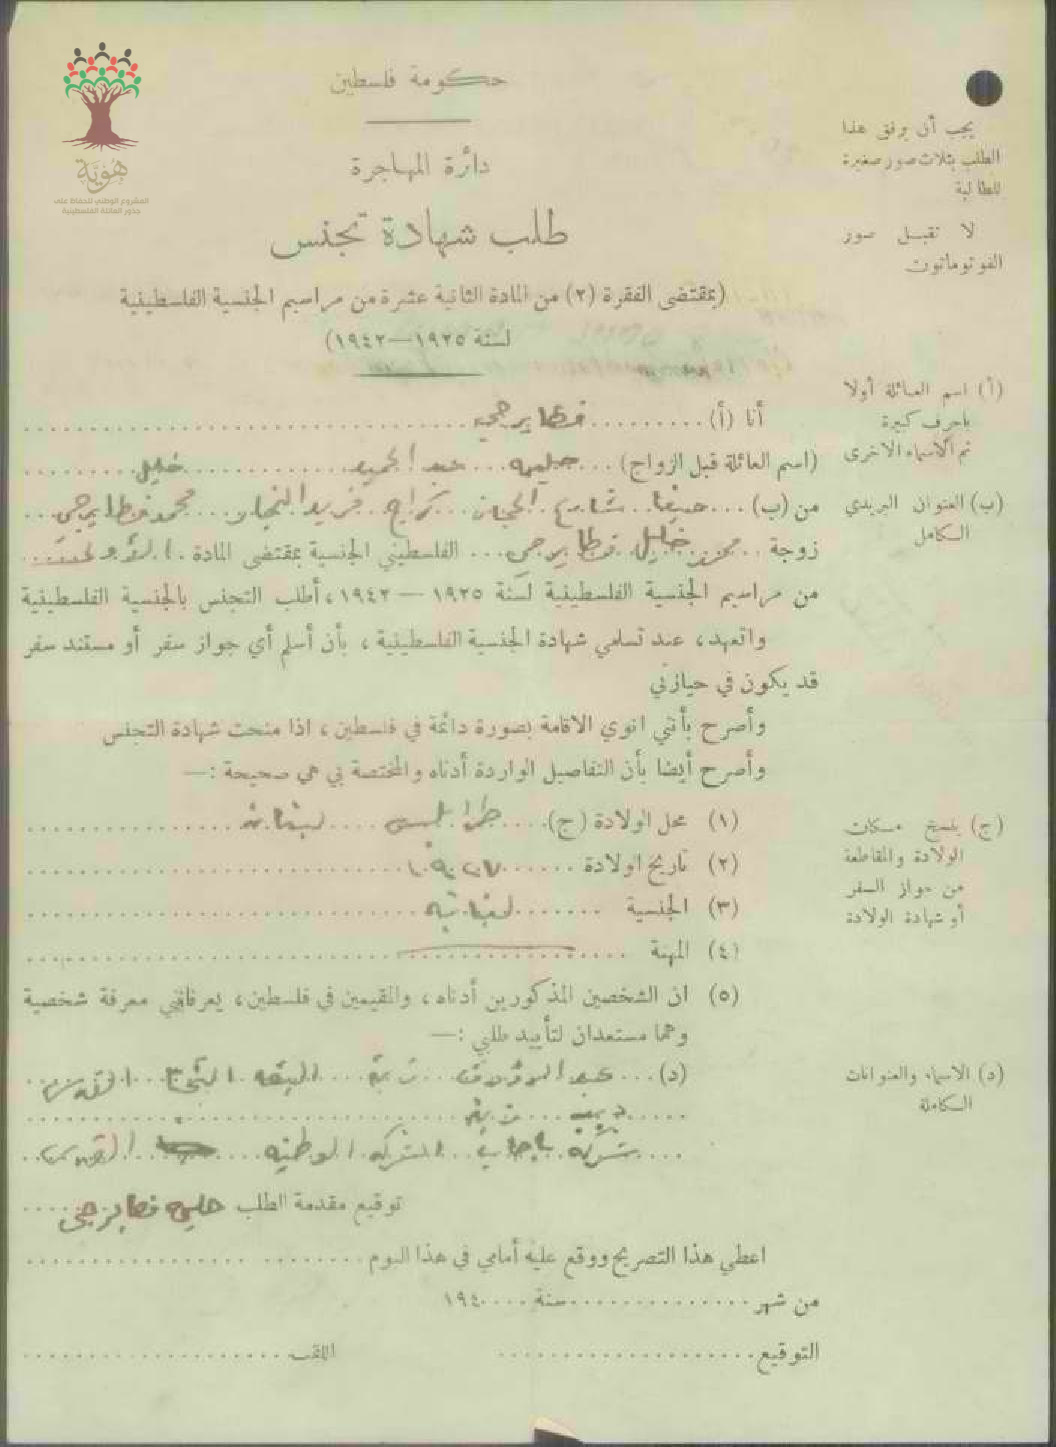 هوية
المشروع الوطني للحفاظ على
جذور العائلة الفلسطينية
حكومة فلسطين
دائرة المهاجرة
طلب شهادة تجنس
(بمقتضى الفقرة (٢) من المادة الثانية عشرة من مراسيم الجنسية الفلسطينية
لسنة ١٩٢٥—١٩٤٢)
يجب أن يرفق هذا
الطلب بثلاث صور صغيرة
للطالبة
لا تقبل صور
الفوتوماتون
(أ) اسم العائلة أولا
باحرف كبيرة
ثم الاسماء الاخرى
أنا (أ) قطايرجي
(اسم العائلة قبل الزواج) حليمه عبد الحميد خليل
(ب) العنوان البريدي
الكامل
من (ب) حيفا شارع كراج فريد النجار محمد قطايرجي
زوجة محمد خليل قطايرجي الفلسطيني الجنسية بمقتضى المادة
من مراسيم الجنسية الفلسطينية لسنة ١٩٢٥ — ١٩٤٢، أطلب التجنس بالجنسية الفلسطينية
واتعهد، عند تسلمي شهادة الجنسية الفلسطينية، بأن أسلم أي جواز سفر أو مستند سفر
قد يكون في حيازتي
وأصرح بأنني انوي الاقامة بصورة دائمة في فلسطين، اذا منحت شهادة التجنس
وأصرح أيضا بأن التفاصيل الواردة أدناه والمختصة بي هي صحيحة :—
(١) محل الولادة (ج) طرابلس لبنان
(٢) تاريخ الولادة
(٣) الجنسية لبنانيه
(٤) المهنة
(ج) بنسخ مكان
الولادة والمقاطعة
من جواز السفر
أو شهادة الولادة
(٥) ان الشخصين المذكورين أدناه، والمقيمين في فلسطين، يعرفانني معرفة شخصية
وهما مستعدان لتأييد طلبي :—
(د) الاسماء والعنوانات
الكاملة
(د) عبد الرؤوف
شركة الشركه الوطنيه القدس
توقيع مقدمة الطلب حليمه قطايرجي
اعطي هذا التصريح ووقع عليه أمامي في هذا اليوم
من شهر سنة ١٩٤
التوقيع اللقب